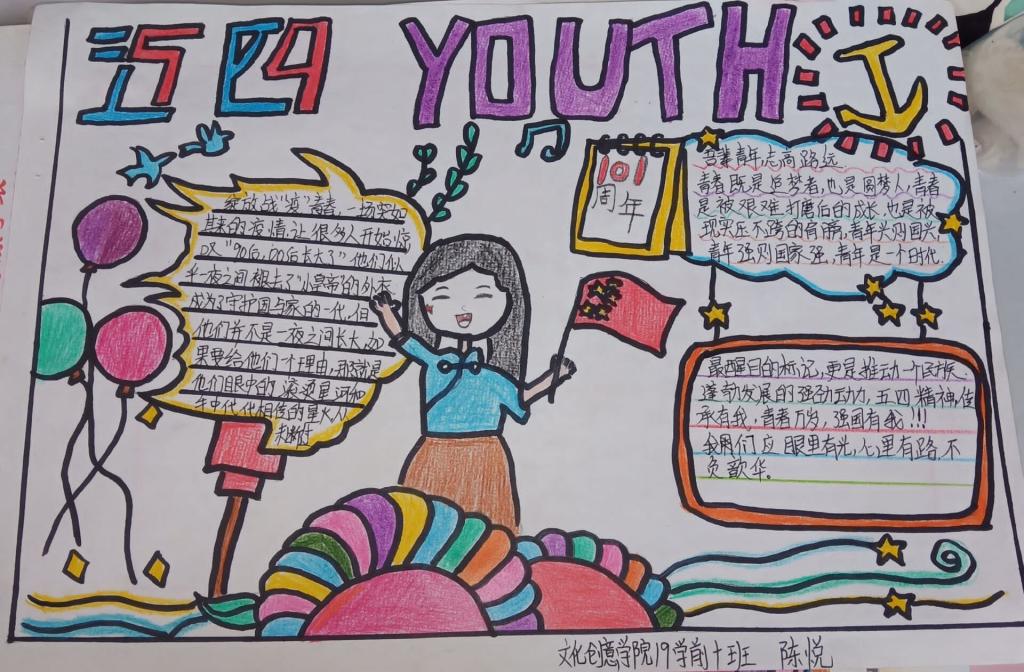 五四 YOUTH
101
周年
吾辈青年,志高路远
青春既是追梦者,也是圆梦人,青春
是被艰难打磨后的成长,也是被
现实压不跨的肩膀,青年兴则国兴
青年强则国家强,青年是一个时代
绽放战"疫"青春,一场突如
其来的疫情,让很多人开始惊
叹"90后,00后长大了"他们似
乎一夜之间褪去了"小皇帝"的外衣
成为了守护国与家的一代,但
他们并不是一夜之间长大,如
果要给他们一个理由,那就是
他们眼中的滚烫星河和
手中代代相传的星火从
未断
最醒目的标记,更是推动一个民族
蓬勃发展的强劲动力,五四精神,传
承有我,青春万岁,强国有我!!!
我们应眼里有光,心里有路,不
负韶华.
文化创意学院19学前十班 陈悦